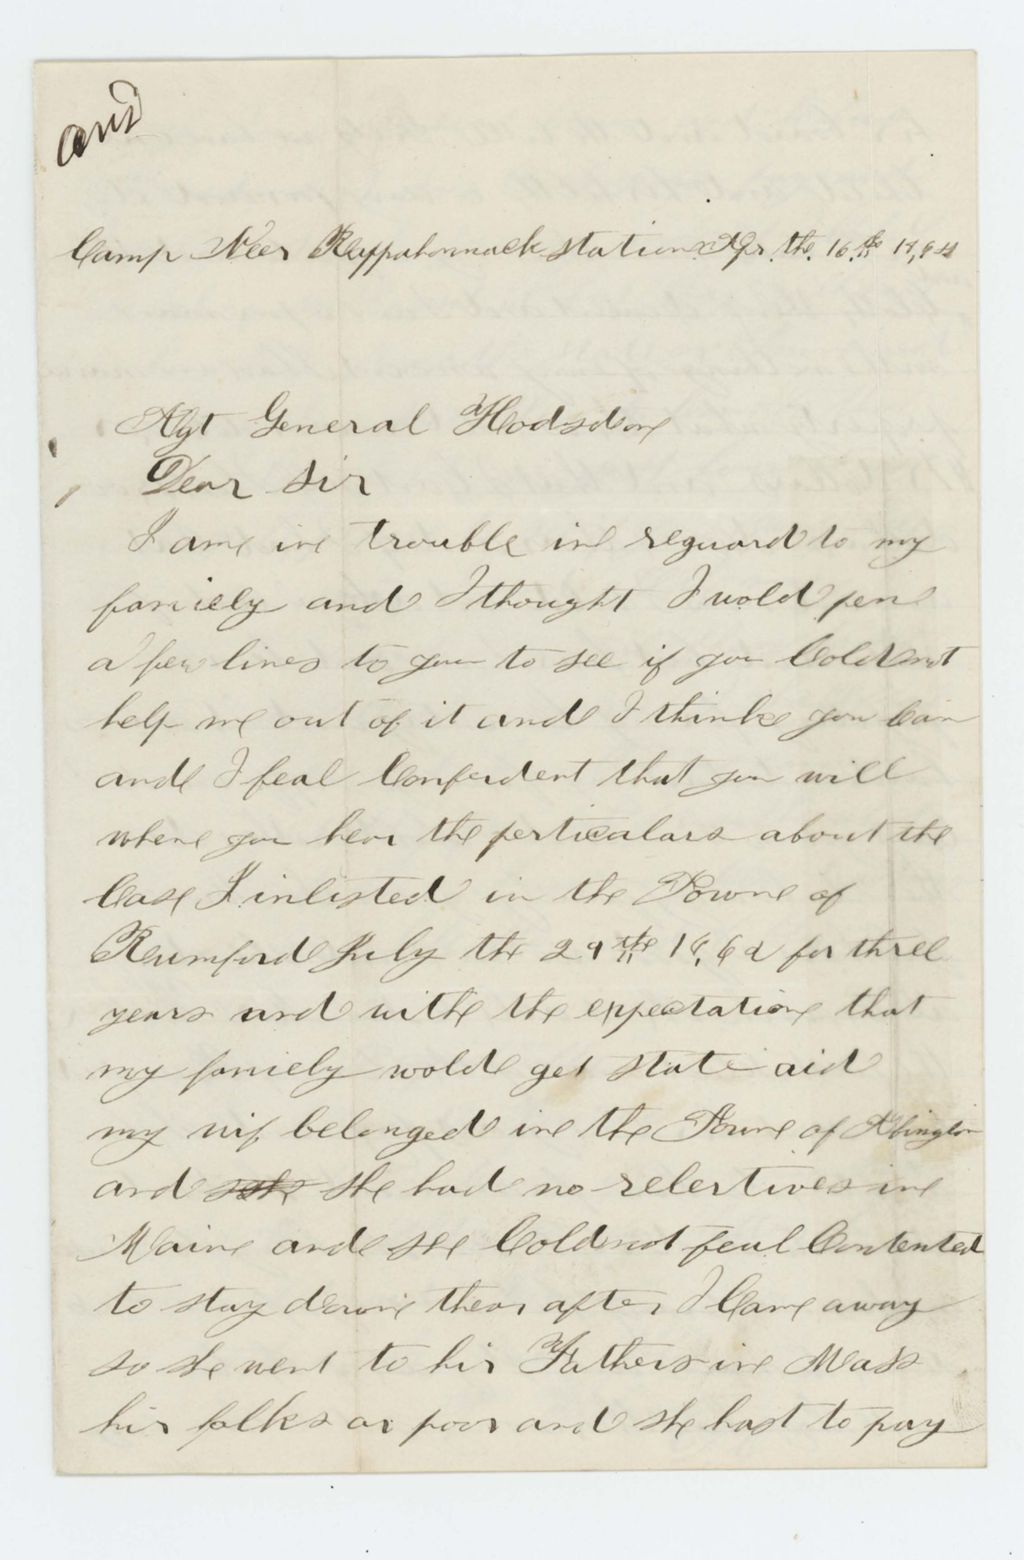 ans
Camp Neer Rappahonnack station Apr the 16th 1864
Agt General Hodsdon
Dear Sir
I am in trouble in reguard to my
famiely and I thought I wold pen
a few lines to you to see if you Cold not
help me out of it and I think you Can
and I feal Conferdent that you will
when you hear the perticalars about the
Case I inlisted in the Town of
Rumford July the 29th 1862 for three
years and with the expectation that
my famiely wold get state aid
my wif belonged in the Town of Abington
and she she had no relertives in
Maine and see Cold not feal Contented
to stay down thear after I Came away
so she went to hir Fathers in Mass
hir folks ar poor and she hast to pay